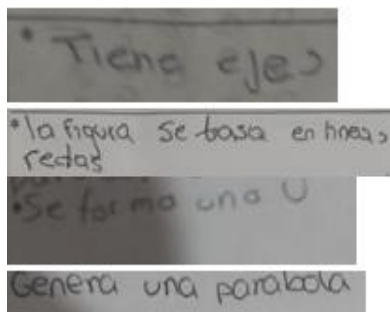 • Tiene ejes
• la figura se basa en lineas
rectas
• Se forma una U
Genera una parabola